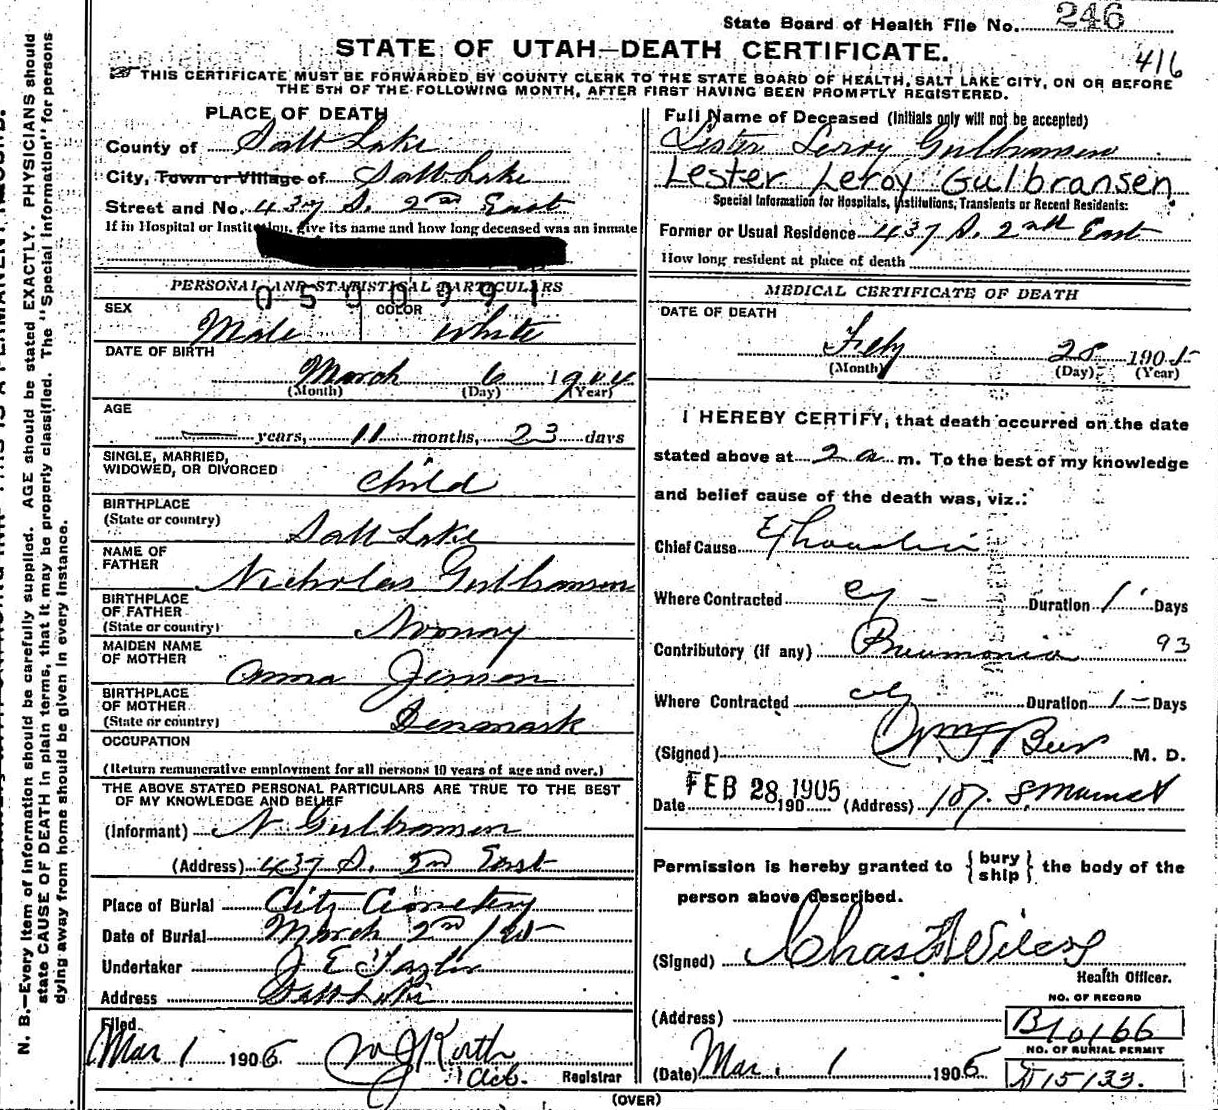 State Board of Health File No. 246
416
STATE OF UTAH—DEATH CERTIFICATE.
THIS CERTIFICATE MUST BE FORWARDED BY COUNTY CLERK TO THE STATE BOARD OF HEALTH, SALT LAKE CITY, ON OR BEFORE
THE 5TH OF THE FOLLOWING MONTH, AFTER FIRST HAVING BEEN PROMPTLY REGISTERED.
PLACE OF DEATH
County of Salt Lake
City, Town or Village of Salt Lake
Street and No. 437 S. 2nd East
If in Hospital or Institution, give its name and how long deceased was an inmate
PERSONAL AND STATISTICAL PARTICULARS
0500991
SEX Male COLOR White
DATE OF BIRTH
March 6 1904
(Month) (Day) (Year)
AGE
— years, 11 months, 23 days
SINGLE, MARRIED,
WIDOWED, OR DIVORCED child
BIRTHPLACE
(State or country) Salt Lake
NAME OF
FATHER Nicholas Gulbransen
BIRTHPLACE
OF FATHER
(State or country) Norway
MAIDEN NAME
OF MOTHER Anna Jensen
BIRTHPLACE
OF MOTHER
(State or country) Denmark
OCCUPATION
(Return remunerative employment for all persons 10 years of age and over.)
THE ABOVE STATED PERSONAL PARTICULARS ARE TRUE TO THE BEST
OF MY KNOWLEDGE AND BELIEF
(Informant) N Gulbransen
(Address) 437 S. 2nd East
Place of Burial City Cemetery
Date of Burial March 2nd 1905
Undertaker J E Taylor
Address Salt Lake
Filed
Mar 1 1905
Registrar
Full Name of Deceased (Initials only will not be accepted)
Lester Leroy Gulbransen
Lester Leroy Gulbransen
Special Information for Hospitals, Institutions, Transients or Recent Residents:
Former or Usual Residence 437 S. 2nd East
How long resident at place of death
MEDICAL CERTIFICATE OF DEATH
DATE OF DEATH
Feby 28 1905
(Month) (Day) (Year)
I HEREBY CERTIFY, that death occurred on the date
stated above at 2 a m. To the best of my knowledge
and belief cause of the death was, viz.:
Chief Cause Exhaustion
Where Contracted Duration 1 Days
Contributory (if any) Pneumonia 93
Where Contracted Duration 1 Days
(Signed) M. D.
Date FEB 28 1905 190 (Address) 107. S. Main St
Permission is hereby granted to {bury
ship} the body of the
person above described.
(Signed) Chas
Health Officer.
NO. OF RECORD
(Address) B10166
NO. OF BURIAL PERMIT
(Date) Mar. 1 1905 D15133.
(OVER)
N. B.—Every item of information should be carefully supplied. AGE should be stated EXACTLY. PHYSICIANS should
state CAUSE OF DEATH in plain terms, that it may be properly classified. The "Special Information" for persons
dying away from home should be given in every instance.